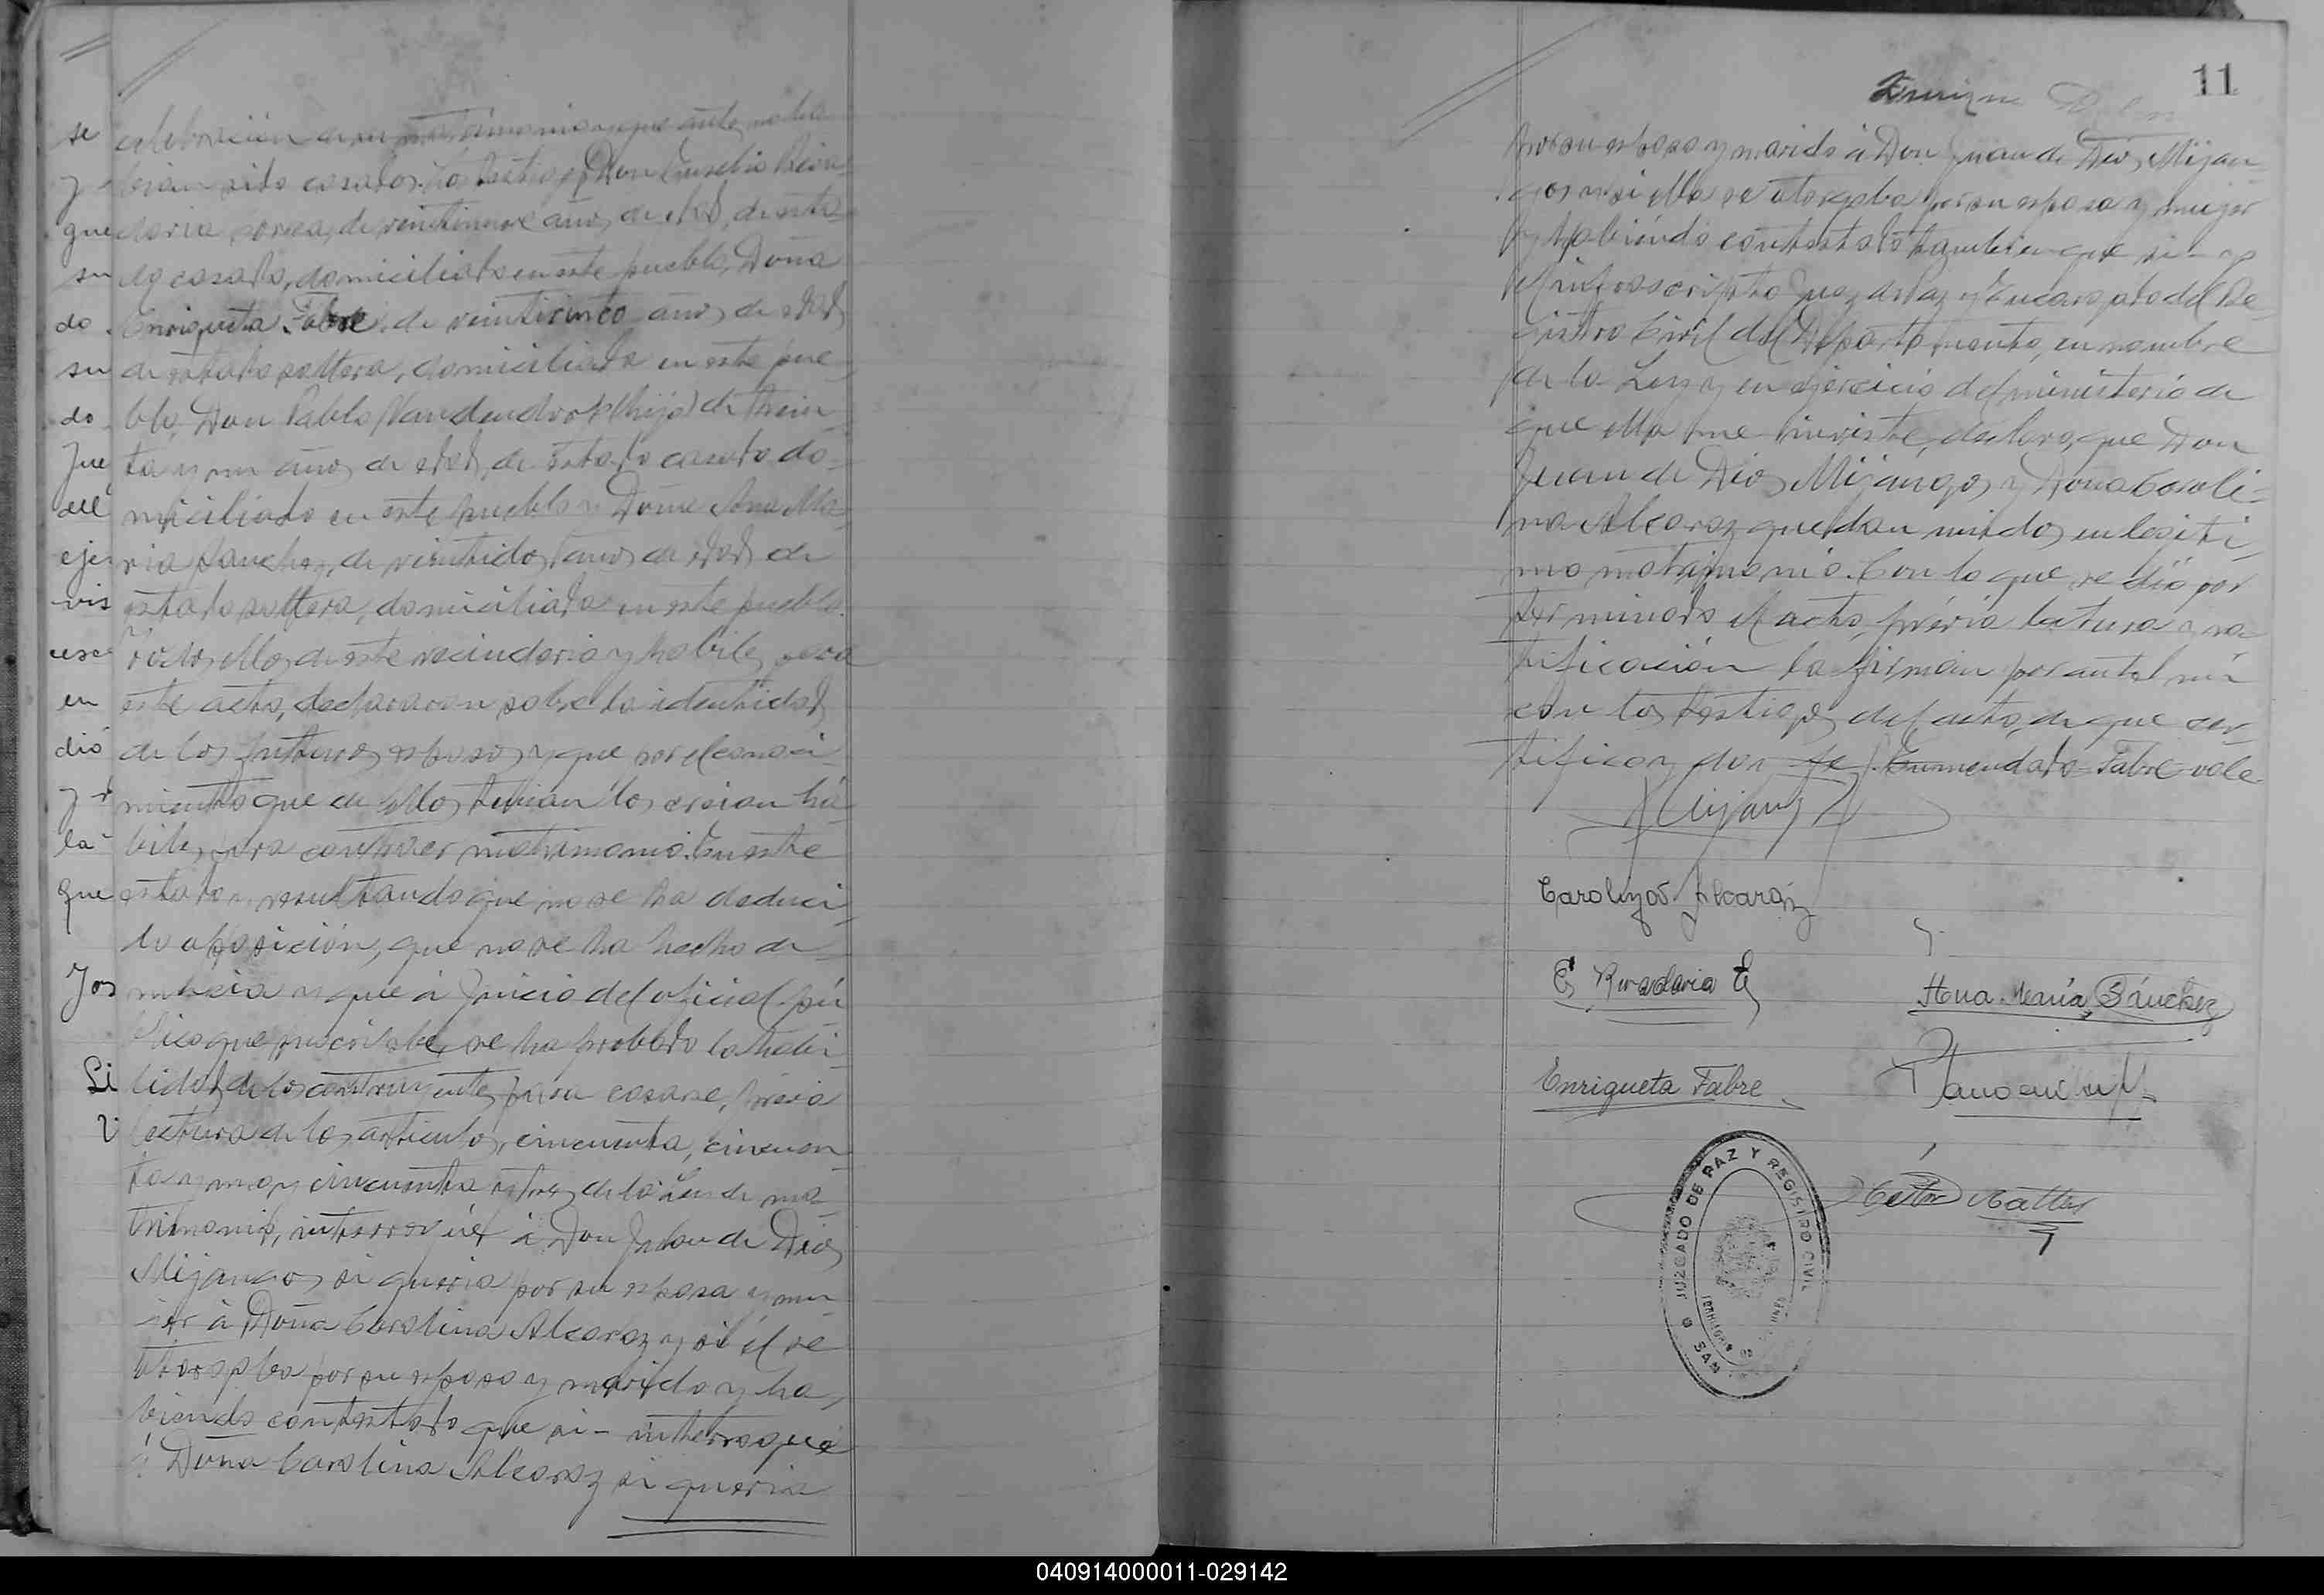 celebración de su matrimonio y que antes no ha-
bian sido casados. Los testigos Don Eusebio
de veintinueve años de edad, de esta-
do casado, domiciliado en este pueblo, Doña
Enriqueta Fabre, de veinticinco años de edad,
de estado soltera, domiciliada en este pue-
blo, Don Pablo (hijo) de trein-
ta y un años de edad, de estado casado do-
miciliado en este pueblo y Doña Ana Ma-
ria Sanchez, de veintidos años de edad de
estado soltera, domiciliada en este pueblo.
Todos ellos de este vecindario y habiles para
este acto, declararon sobre la identidad
de los futuros esposos y que por el conoci-
miento que de ellos tenian los creian há-
biles para contraer matrimonio. En este
estado y resultando que no se ha deduci-
do oposición, que no se ha hecho de-
nuncia y que á juicio del oficial pú-
blico que suscribe, se ha probado la habi-
lidad de los contrayentes para casarse, previa
lectura de los articulos, cincuenta, cincuen-
ta y uno y cincuenta y tres de la Ley de ma-
trimonio, interrogué á Don Juan de Dios
Mijangos si queria por su esposa y mu-
jer á Doña Carolina Alcaraz y si él se
otorgaba por su esposo y marido y ha-
biendo contestado que si - interrogué
á Doña Carolina Alcaraz si queria
se
y
que
su
do
su
do
Jue
del
eje
vis
en
dió
y
la
que
Jos
Li
11
por su esposo y marido á Don Juan de Dios Mijan-
gos y si ella se otorgaba por su esposa y mujer
y habiendo contestado tambien que si - yo
el infrascripto Juez de Paz y Encargado del Re-
gistro Civil del Departamento, en nombre
de la Ley y en ejercicio del ministerio de
que ella me inviste, declaro, que Don
Juan de Dios Mijangos y Doña Caroli-
na Alcaraz quedan unidos en legiti-
mo matrimonio. Con lo que se dió por
terminado el acto, prévia lectura y ra-
tificación la firman por ante mí
con los testigos del acto, de que cer-
tifico y doy fe. Enmendado = Fabre vale
Mijangos
Carolina Alcaráz
Ana María Sánchez
Enriqueta Fabre
JUZGADO DE PAZ Y REGISTRO CIVIL
SAN
040914000011-029142